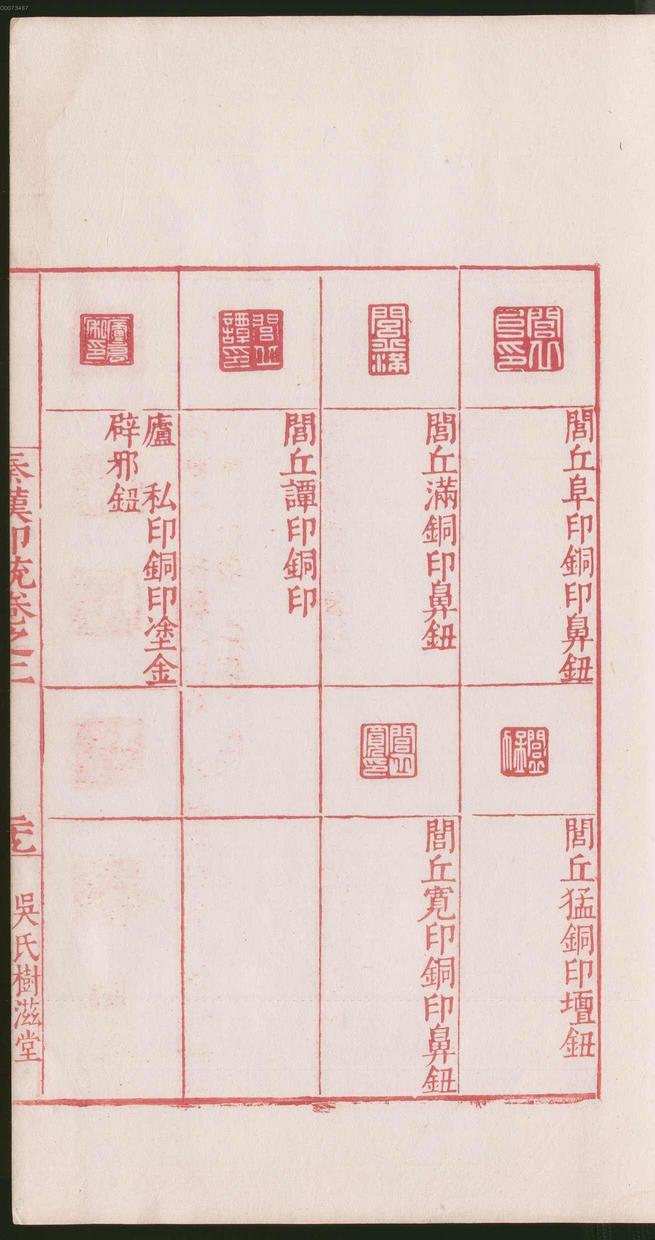 閭丘阜印銅印鼻鈕
閭丘滿銅印鼻鈕
閭丘譚印銅印
廬　私印銅印塗金
辟邪鈕
閭丘猛銅印壇鈕
閭丘寬印銅印鼻鈕
秦漢印統卷之三
吳氏樹滋堂
00073467